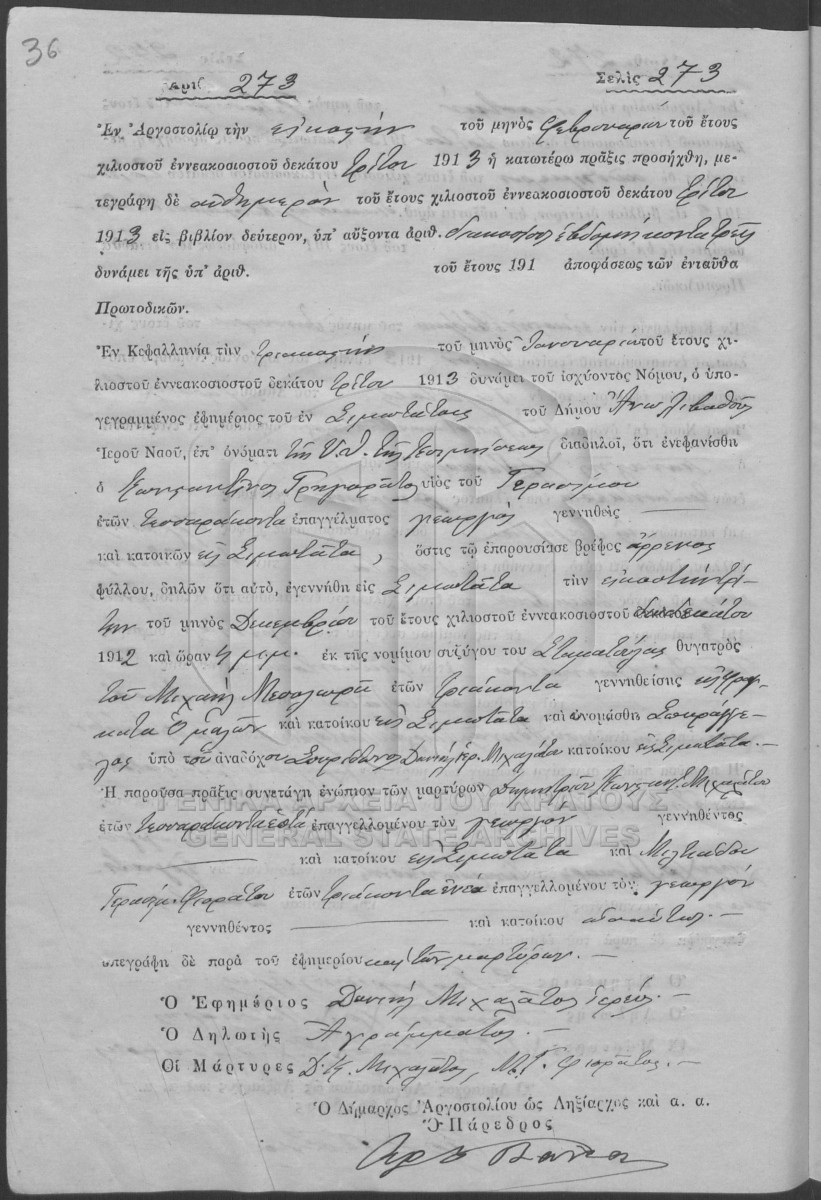 36
Ἀριθ. 273 Σελὶς 273
Ἐν Ἀργοστολίῳ τὴν εἰκοστὴν τοῦ μηνὸς Φεβρουαρίου τοῦ ἔτους
χιλιοστοῦ ἐννεακοσιοστοῦ δεκάτου τρίτου 1913 ἡ κατωτέρω πρᾶξις προσήχθη, με-
τεγράφη δὲ αὐθημερὸν τοῦ ἔτους χιλιοστοῦ ἐννεακοσιοστοῦ δεκάτου τρίτου
1913 εἰς βιβλίον δεύτερον, ὑπ' αὔξοντα ἀριθ. διακόσιοι ἑβδομήκοντα τρεῖς
δυνάμει τῆς ὑπ' ἀριθ. τοῦ ἔτους 191 ἀποφάσεως τῶν ἐνταῦθα
Πρωτοδικῶν.
Ἐν Κεφαλληνίᾳ τὴν τριακοστὴν τοῦ μηνὸς Ἰανουαρίου τοῦ ἔτους χι-
λιοστοῦ ἐννεακοσιοστοῦ δεκάτου τρίτου 1913 δυνάμει τοῦ ἰσχύοντος Νόμου, ὁ ὑπο-
γεγραμμένος ἐφημέριος τοῦ ἐν Σιμωτάτοις τοῦ Δήμου Ἄνω Λιβαθοῦς
Ἱεροῦ Ναοῦ, ἐπ' ὀνόματι τῆς Υ.Θ. τῆς Κοιμήσεως διαδηλοῖ, ὅτι ἐνεφανίσθη
ὁ Κωνσταντῖνος Γρηγορᾶτος υἱὸς τοῦ Γερασίμου
ἐτῶν τεσσαράκοντα ἐπαγγέλματος γεωργὸς γεννηθεὶς
καὶ κατοικῶν εἰς Σιμωτάτα, ὅστις τῷ ἐπαρουσίασε βρέφος ἄρρενος
φύλλου, δηλῶν ὅτι αὐτό, ἐγεννήθη εἰς Σιμωτάτα τὴν εἰκοστὴν τρί-
την τοῦ μηνὸς Δεκεμβρίου τοῦ ἔτους χιλιοστοῦ ἐννεακοσιοστοῦ δωδεκάτου
1912 καὶ ὥραν 4 μ.μ. ἐκ τῆς νομίμου συζύγου του Σταματούλας θυγατρὸς
τοῦ Μιχαὴλ ἐτῶν τριάκοντα γεννηθείσης εἰς
Ὁμαλῶν καὶ κατοίκου εἰς Σιμωτάτα καὶ ὠνομάσθη
ὑπὸ τοῦ ἀναδόχου Σπυρίδωνος Δανιὴλ ἱερ. Μιχαλάτου κατοίκου εἰς Σιμωτάτα.
Ἡ παροῦσα πρᾶξις συνετάγη ἐνώπιον τῶν μαρτύρων Δημητρίου Κωνσταντ. Μιχαλάτου
ἐτῶν τεσσαράκοντα ἑπτὰ ἐπαγγελλομένου τὸν γεωργὸν γεννηθέντος
καὶ κατοίκου εἰς Σιμωτάτα καὶ Μιλτιάδου
Γερασίμ. Φιοράτου ἐτῶν τριάκοντα ἐννέα ἐπαγγελλομένου τὸν γεωργὸν
γεννηθέντος καὶ κατοίκου
υπεγράφη δὲ παρὰ τοῦ ἐφημερίου καὶ τῶν μαρτύρων.
Ὁ Ἐφημέριος Δανιὴλ Μιχαλᾶτος ἱερεύς.
Ὁ Δηλωτὴς Ἀγράμματος.
Οἱ Μάρτυρες Δ. Κ. Μιχαλᾶτος, Μ. Γ. Φιορᾶτος.
Ὁ Δήμαρχος Ἀργοστολίου ὡς Ληξίαρχος καὶ α. α.
Ὁ Πάρεδρος
ΓΕΝΙΚΑ ΑΡΧΕΙΑ ΤΟΥ ΚΡΑΤΟΥΣ
GENERAL STATE ARCHIVES